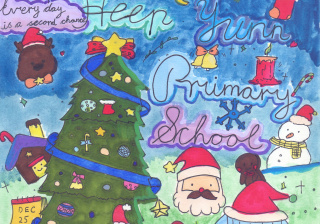 Every day
is a second chance
Heep
Yunn
Primary
School
DEC
25